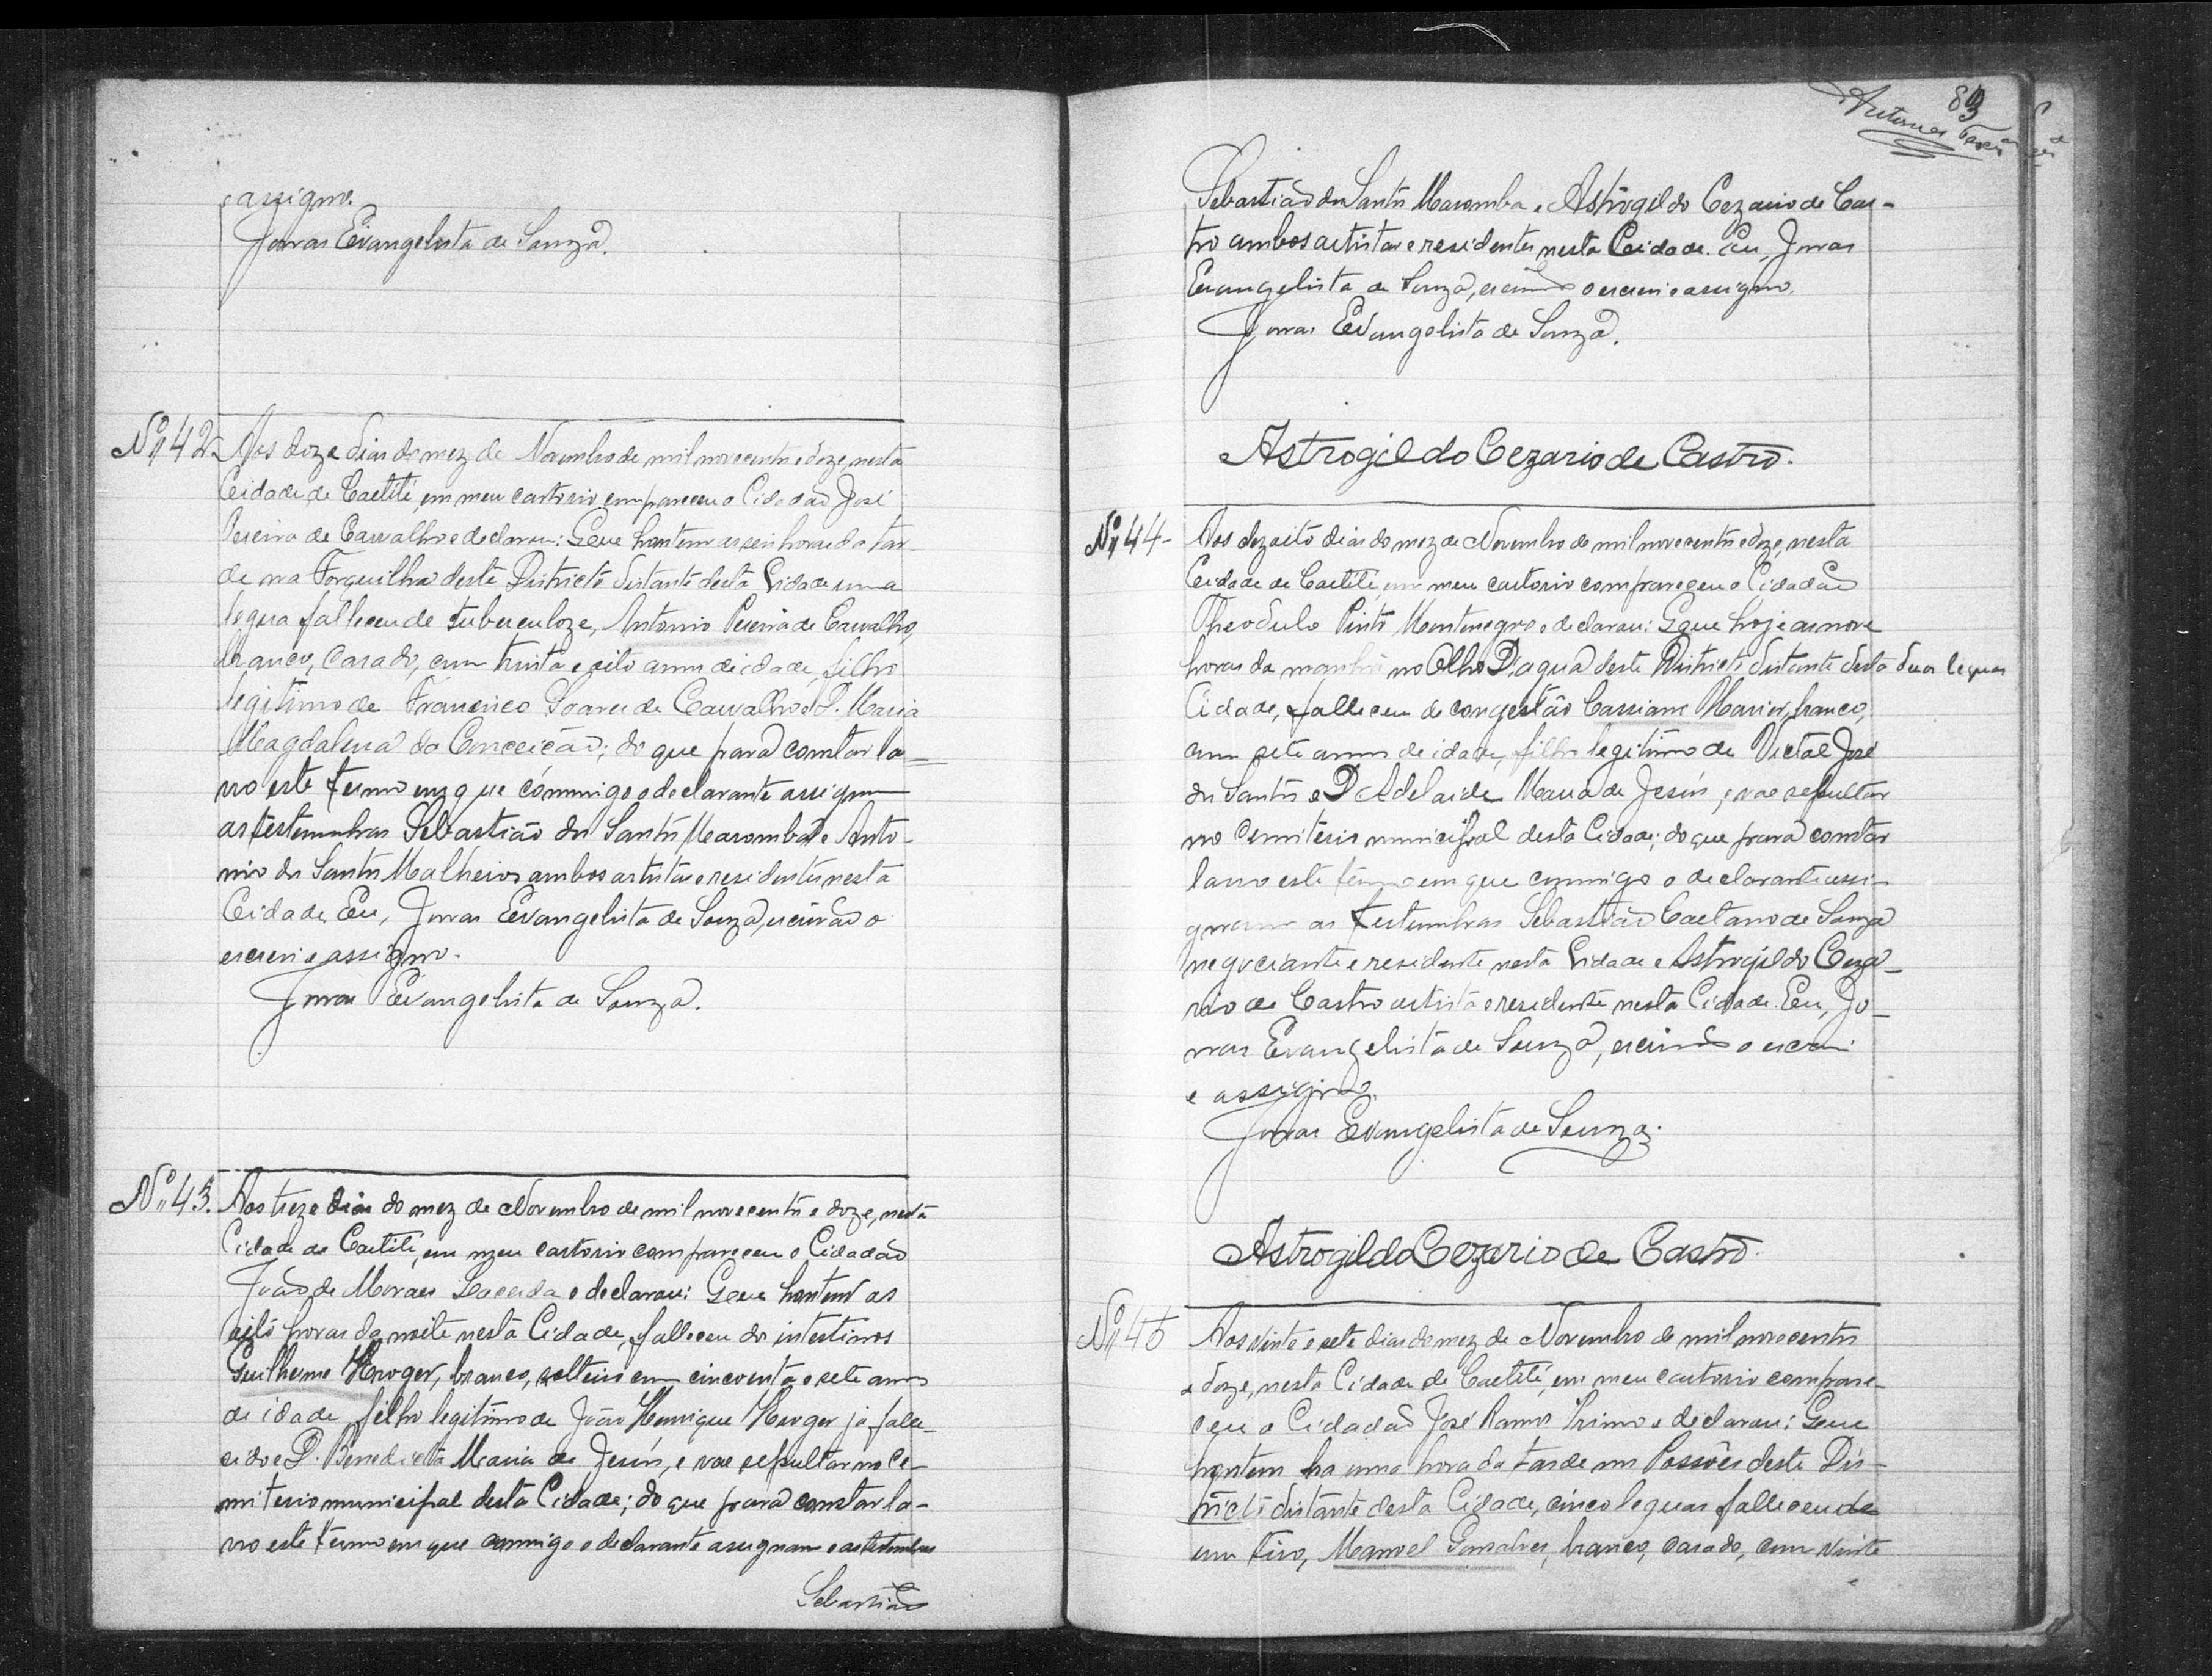 assigno.
Jonas Evangelista de Souza.
Nº 42 Aos doze dias do mez de Novembro de mil novecentos e doze, nesta
Cidade de Caetité, em meu cartorio, compareceu o Cidadão José
Pereira de Carvalho e declarou: Que hontem as seis horas da tar-
de na Forquilha deste Districto distante desta Cidade uma
legua falleceu de tuberculoze, Antonio Pereira de Carvalho,
branco, casado, com trinta e oito annos de idade, filho
legitimo de Francisco Soares de Carvalho e D. Maria
Magdalena da Conceição; do que para constar la-
vro este termo em que commigo o declarante assignam
as testemunhas Sebastião dos Santos Maromba e Anto-
nio dos Santos Malheiros ambos artistas e residentes nesta
Cidade. Eu, Jonas Evangelista de Souza, escrivão o
escrevi e assigno.
Jonas Evangelista de Souza.
Nº 43. Aos treze dias do mez de Novembro de mil novecentos e doze, nesta
Cidade de Caetité, em meu cartorio compareceu o Cidadão
João de Moraes Lacerda e declarou: Que hontem as
oito horas da noite nesta Cidade, falleceu do intestinos
Guilherme Kroger, branco, solteiro com cincoenta e sete annos
de idade filho legitimo de João Henrique Kroger já falle-
cido e D. Benedicta Maria de Jesús, e vae sepultar no Ce-
miterio municipal desta Cidade; do que para constar la-
vro este termo em que commigo o declarante assignam e as testemunhas
Sebastião
83
Sebastião dos Santos Maromba e Astrogildo Cezario de Cas-
tro ambos artistas e residentes nesta Cidade. Eu, Jonas
Evangelista de Souza, escrivão o escrevi e assigno.
Jonas Evangelista de Souza.
Astrogildo Cezario de Castro.
Nº 44- Aos dezoito dias do mez de Novembro de mil novecentos e doze, nesta
Cidade de Caetité, em meu cartorio compareceu o Cidadão
Theodulo Pinto Montenegro e declarou: Que hoje as nove
horas da manhã no Olho D'agua deste Districto distante desta duas leguas
Cidade, falleceu de congestão Cassiano Xavier, branco,
com sete annos de idade, filho legitimo de Victal José
dos Santos e D Adelaide Maria de Jesús, e vae sepultar
no Cemiterio municipal desta Cidade; do que para constar
lavro este termo em que commigo o declarante assi-
gnam as testemunhas Sebastião Caetano de Souza
negociante e residente nesta Cidade e Astrogildo Ceza-
rio de Castro artista e residente nesta Cidade. Eu, Jo-
nas Evangelista de Souza, escrivão o escrevi
e assigno.
Jonas Evangelista de Souza.
Astrogildo Cezario de Castro.
Nº 45 Aos vinte e sete dias do mez de Novembro de mil novecentos
e doze, nesta Cidade de Caetité, em meu cartorio compare-
ceu o Cidadão José Ramos Primo e declarou: Que
hontem ha uma hora da tarde no Possões deste Dis-
tricto distante desta Cidade, cinco leguas falleceu de
um tiro, Manoel Gonsalves, branco, casado, com vinte